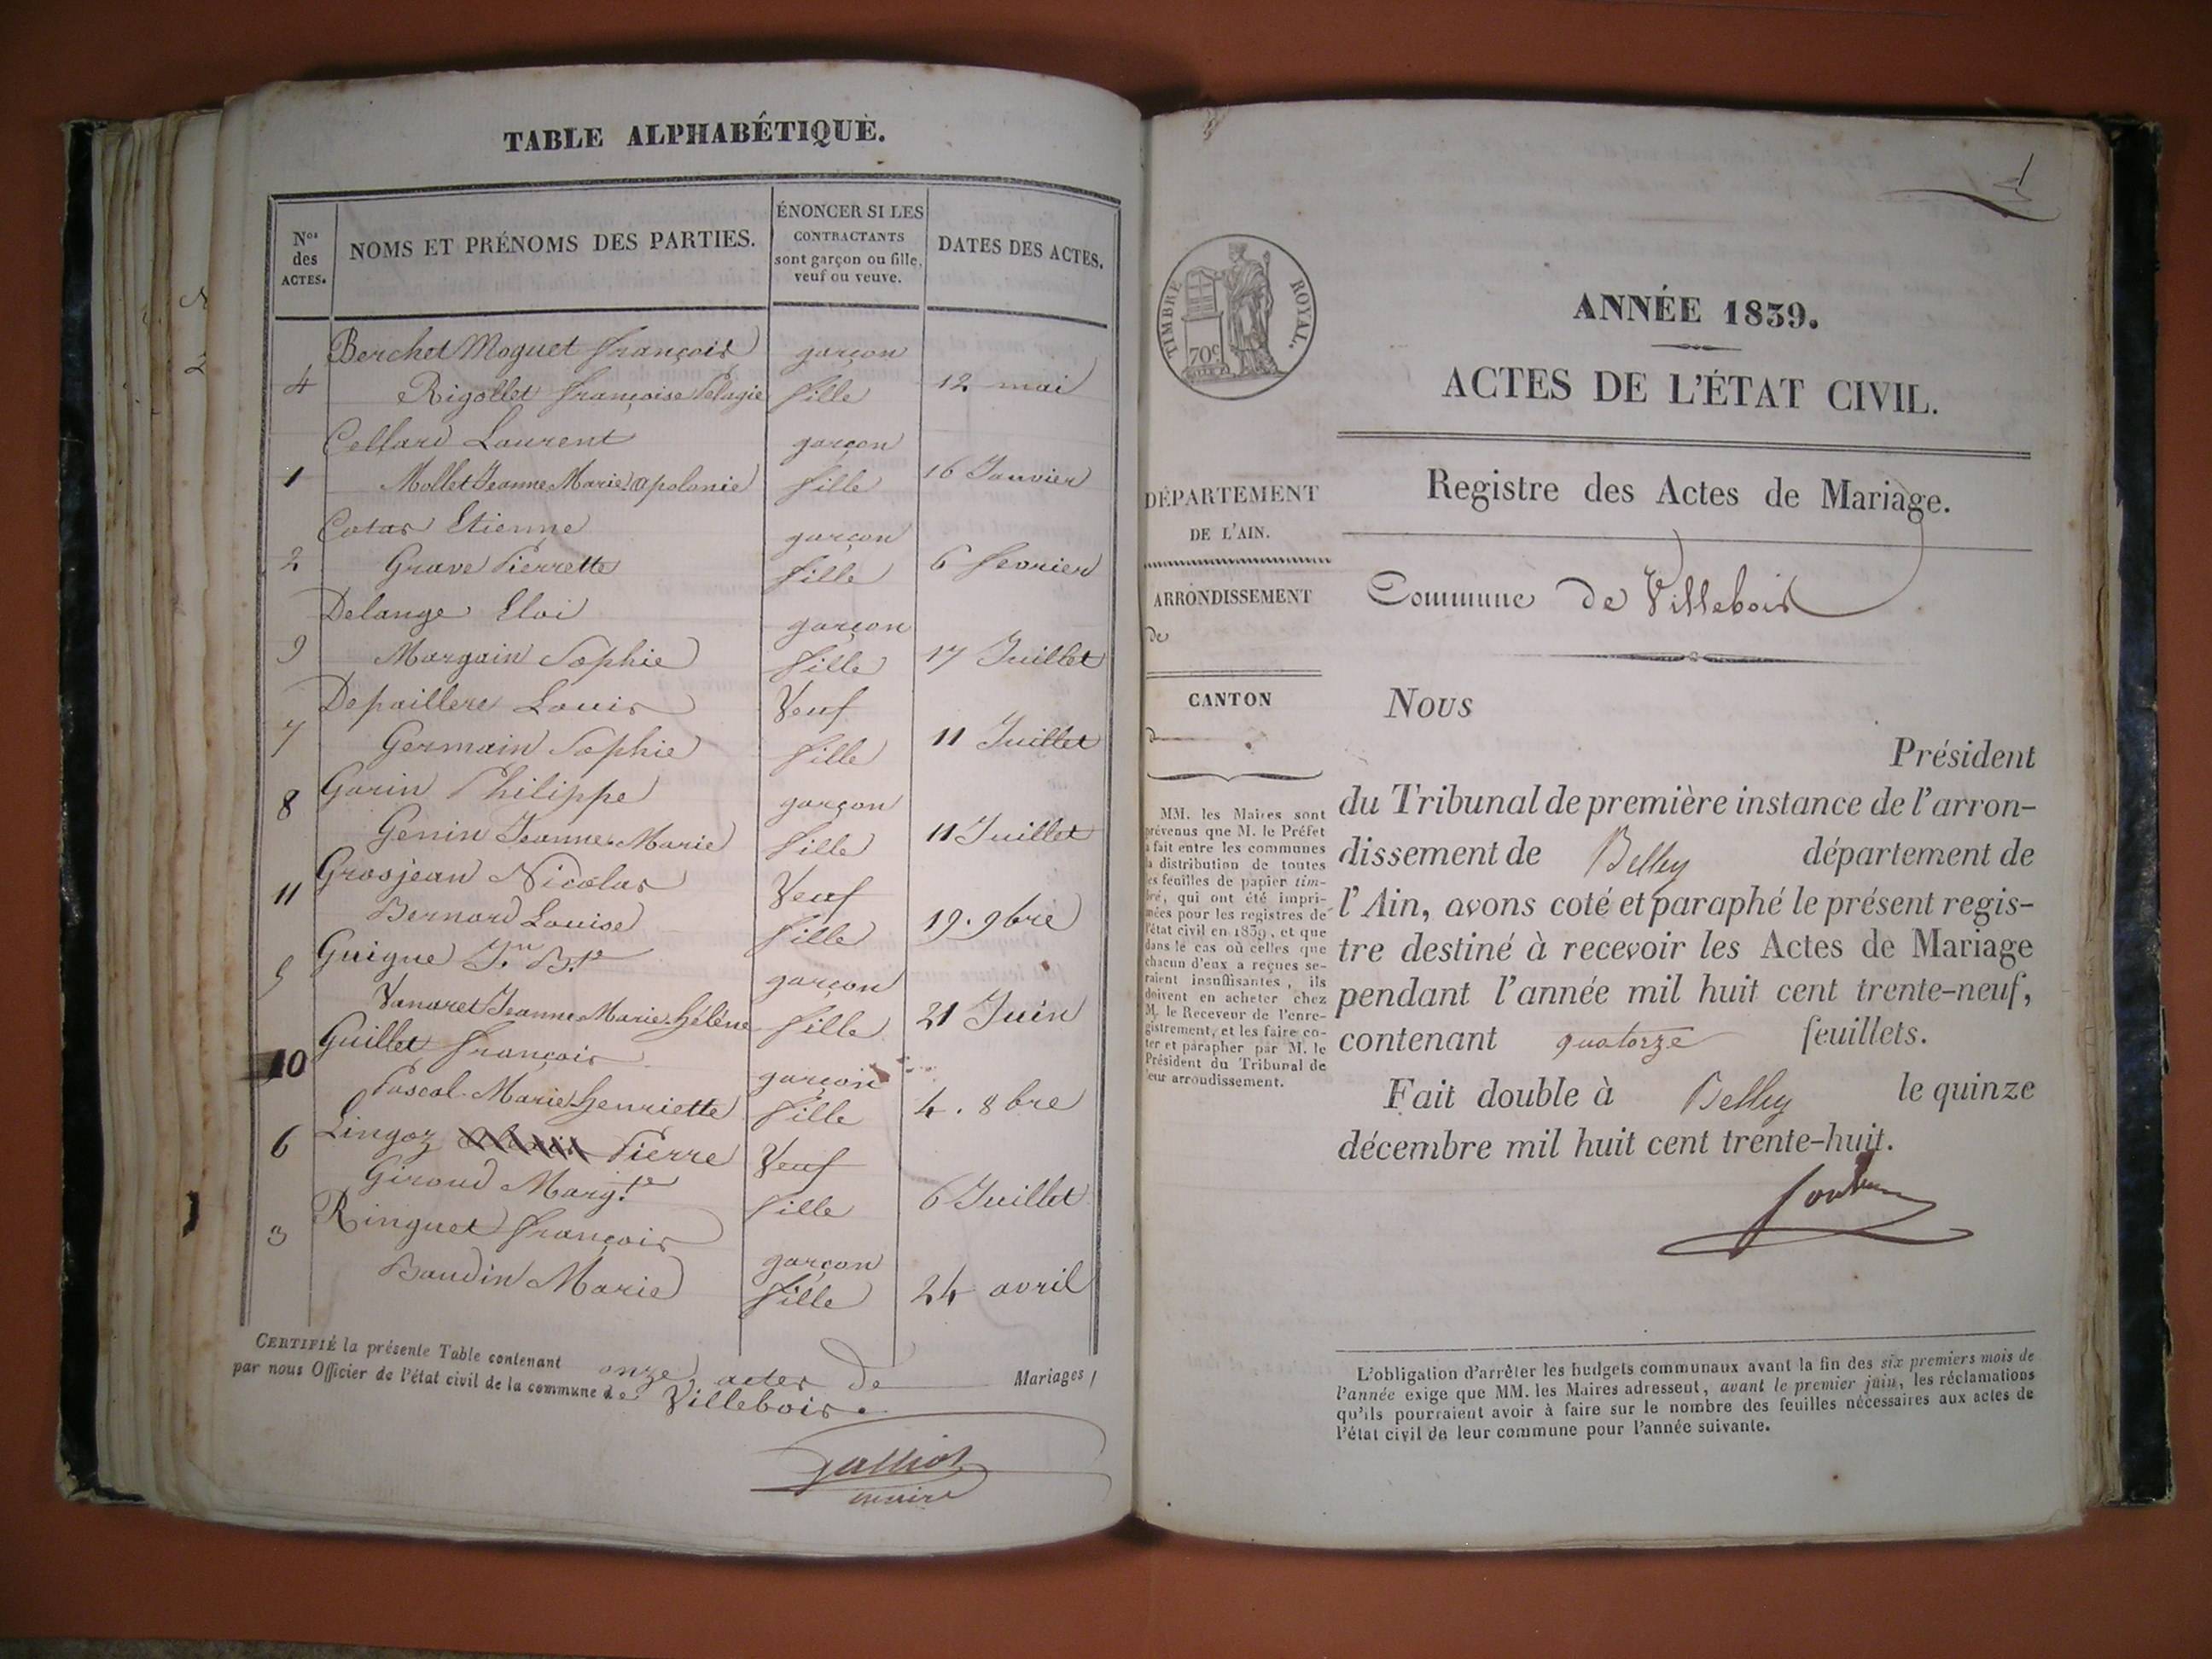 TABLE ALPHABÉTIQUE.
Nos des ACTES.
NOMS ET PRÉNOMS DES PARTIES.
ÉNONCER SI LES CONTRACTANTS sont garçon ou fille, veuf ou veuve.
DATES DES ACTES.
Berchet Moguet françois garçon
4 Rigollet françoise Pelagie fille 12 mai
Cellard Laurent garçon
1 Mollet Jeanne Marie apolonie fille 16 Janvier
Cotar Etienne garçon
2 Grave Pierrette fille 6 fevrier
Delange Eloi garçon
9 Margain Sophie fille 17 Juillet
Depaillere Louis Veuf
7 Germain Sophie fille 11 Juillet
8 Garin Philippe garçon
Genin Jeanne Marie fille 11 Juillet
11 Grosjean Nicolas Veuf
Bernard Louise fille 19. 9bre
5 Guigue Jn Bte garçon
Vanaret Jeanne Marie hélène fille 21 Juin
10 Guillet françois garçon
Pascal Marie henriette fille 4. 8bre
6 Lingoz Pierre Veuf
Giroud Margte fille 6 Juillet
3 Ringuet françois garçon
Baudin Marie fille 24 avril
CERTIFIÉ la présente Table contenant onze actes de Mariages
par nous Officier de l'état civil de la commune de Villebois.
maire
1
TIMBRE ROYAL.
70c
ANNÉE 1839.
ACTES DE L'ÉTAT CIVIL.
Registre des Actes de Mariage.
Commune de Villebois
DÉPARTEMENT
DE L'AIN.
ARRONDISSEMENT
de
CANTON
d
MM. les Maires sont
prévenus que M. le Préfet
a fait entre les communes
la distribution de toutes
les feuilles de papier tim-
bré, qui ont été impri-
mées pour les registres de
l'état civil en 1839, et que
dans le cas où celles que
chacun d'eux a reçues se-
raient insuffisantes, ils
doivent en acheter chez
M. le Receveur de l'enre-
gistrement, et les faire co-
ter et parapher par M. le
Président du Tribunal de
leur arrondissement.
Nous
Président
du Tribunal de première instance de l'arron-
dissement de Belley département de
l'Ain, avons coté et paraphé le présent regis-
tre destiné à recevoir les Actes de Mariage
pendant l'année mil huit cent trente-neuf,
contenant quatorze feuillets.
Fait double à Belley le quinze
décembre mil huit cent trente-huit.
L'obligation d'arrêter les budgets communaux avant la fin des six premiers mois de
l'année exige que MM. les Maires adressent, avant le premier juin, les réclamations
qu'ils pourraient avoir à faire sur le nombre des feuilles nécessaires aux actes de
l'état civil de leur commune pour l'année suivante.